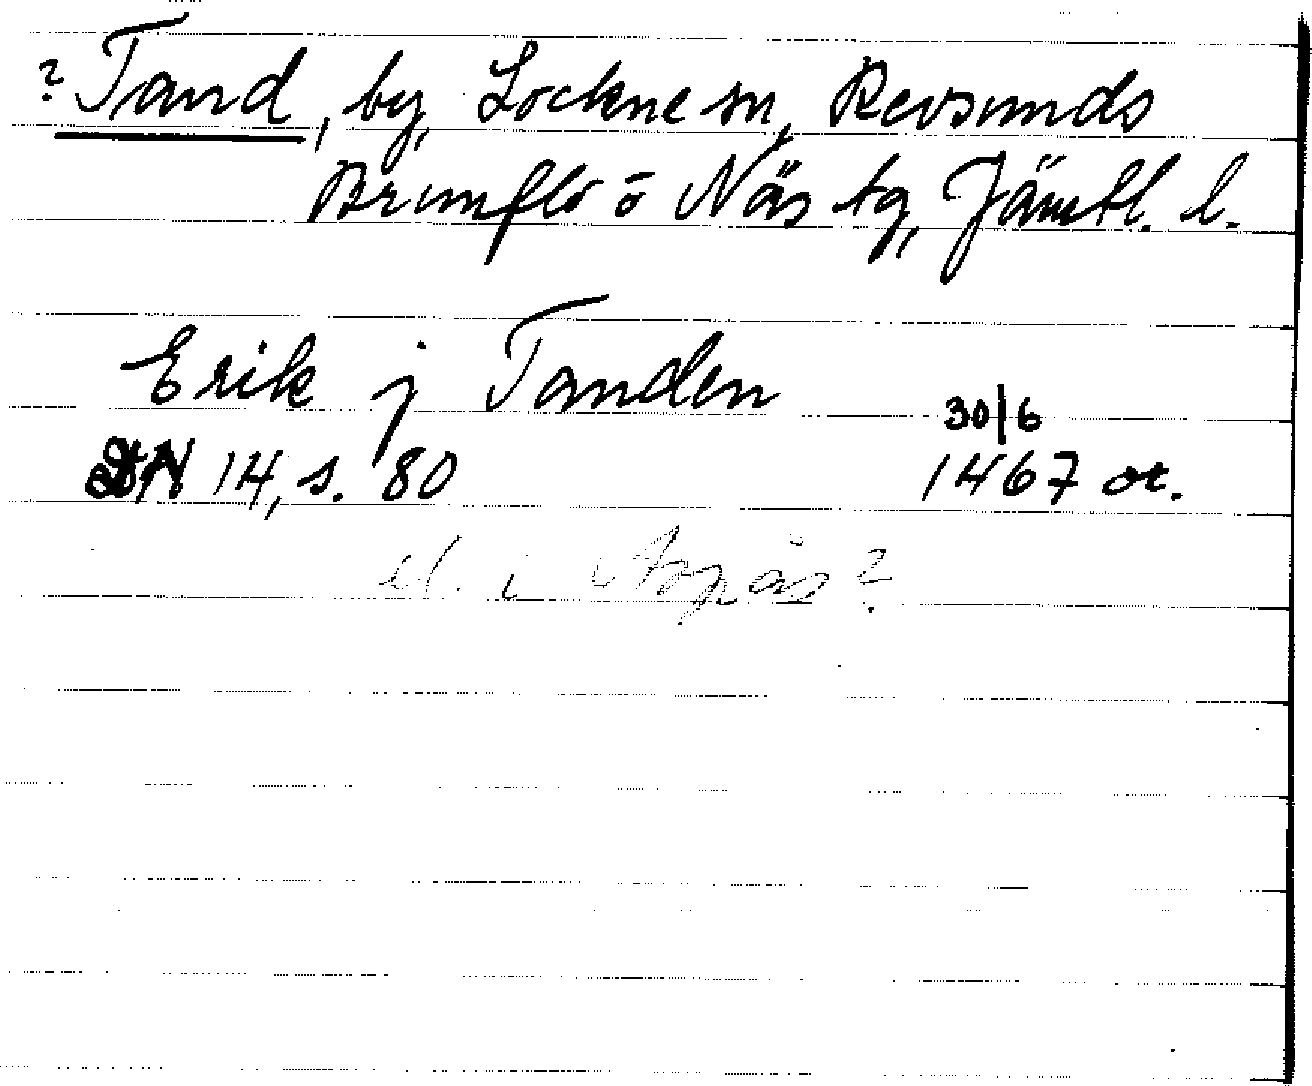 ? Tand, by, Lockne sn, Revsunds
Brunflo o Näs tg, Jämtl. l.
Erik j Tanden
30/6
DN 14, s. 80 1467 or.
el. i Aspås?